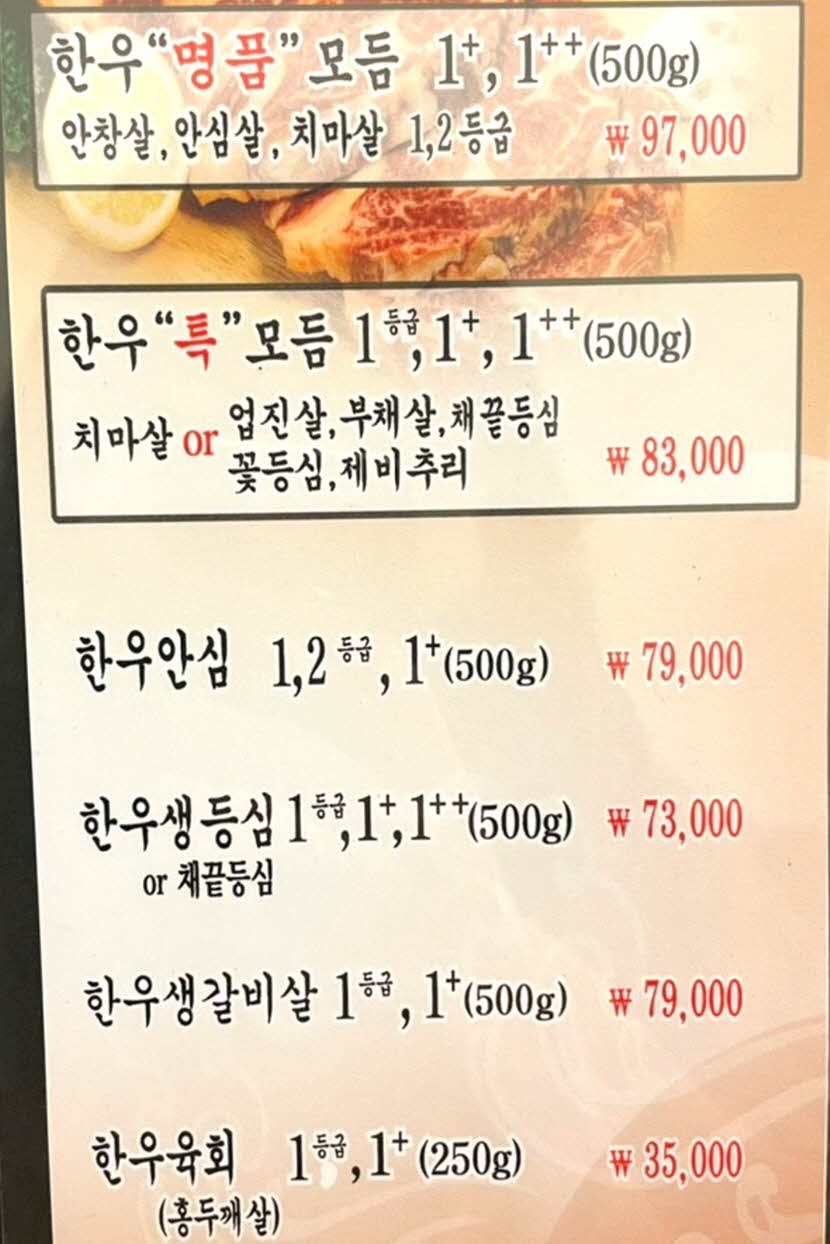 한우“명품”모듬 1+, 1++(500g)
안창살, 안심살, 치마살 1,2등급 ₩ 97,000
한우“특”모듬 1등급, 1+, 1++(500g)
치마살 or 업진살, 부채살, 채끝등심
꽃등심, 제비추리 ₩ 83,000
한우안심 1,2등급, 1+(500g) ₩ 79,000
한우생등심 1등급, 1+, 1++(500g) ₩ 73,000
or 채끝등심
한우생갈비살 1등급, 1+(500g) ₩ 79,000
한우육회 1등급, 1+ (250g) ₩ 35,000
(홍두깨살)